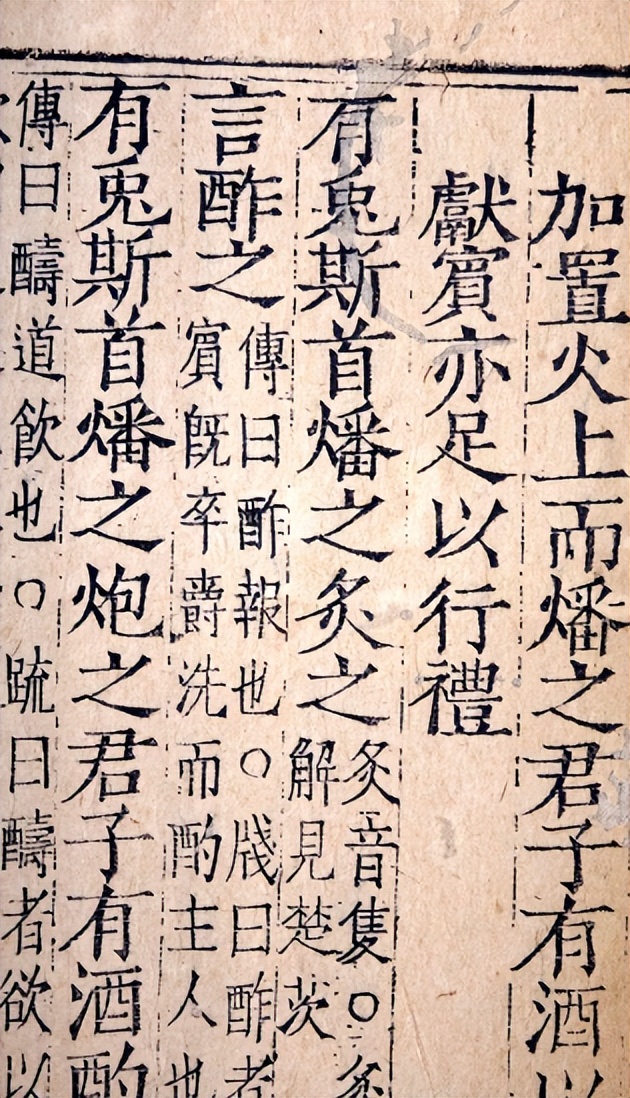 加置火上而燔之君子有酒以
獻賓亦足以行禮
有兎斯首燔之炙之
炙音隻○炙
解見楚茨
言酢之
傳曰酢報也○牋曰酢者
賓旣卒爵洗而酌主人也
有兎斯首燔之炮之君子有酒酌
傳曰醻道飲也○䟽曰醻者欲以